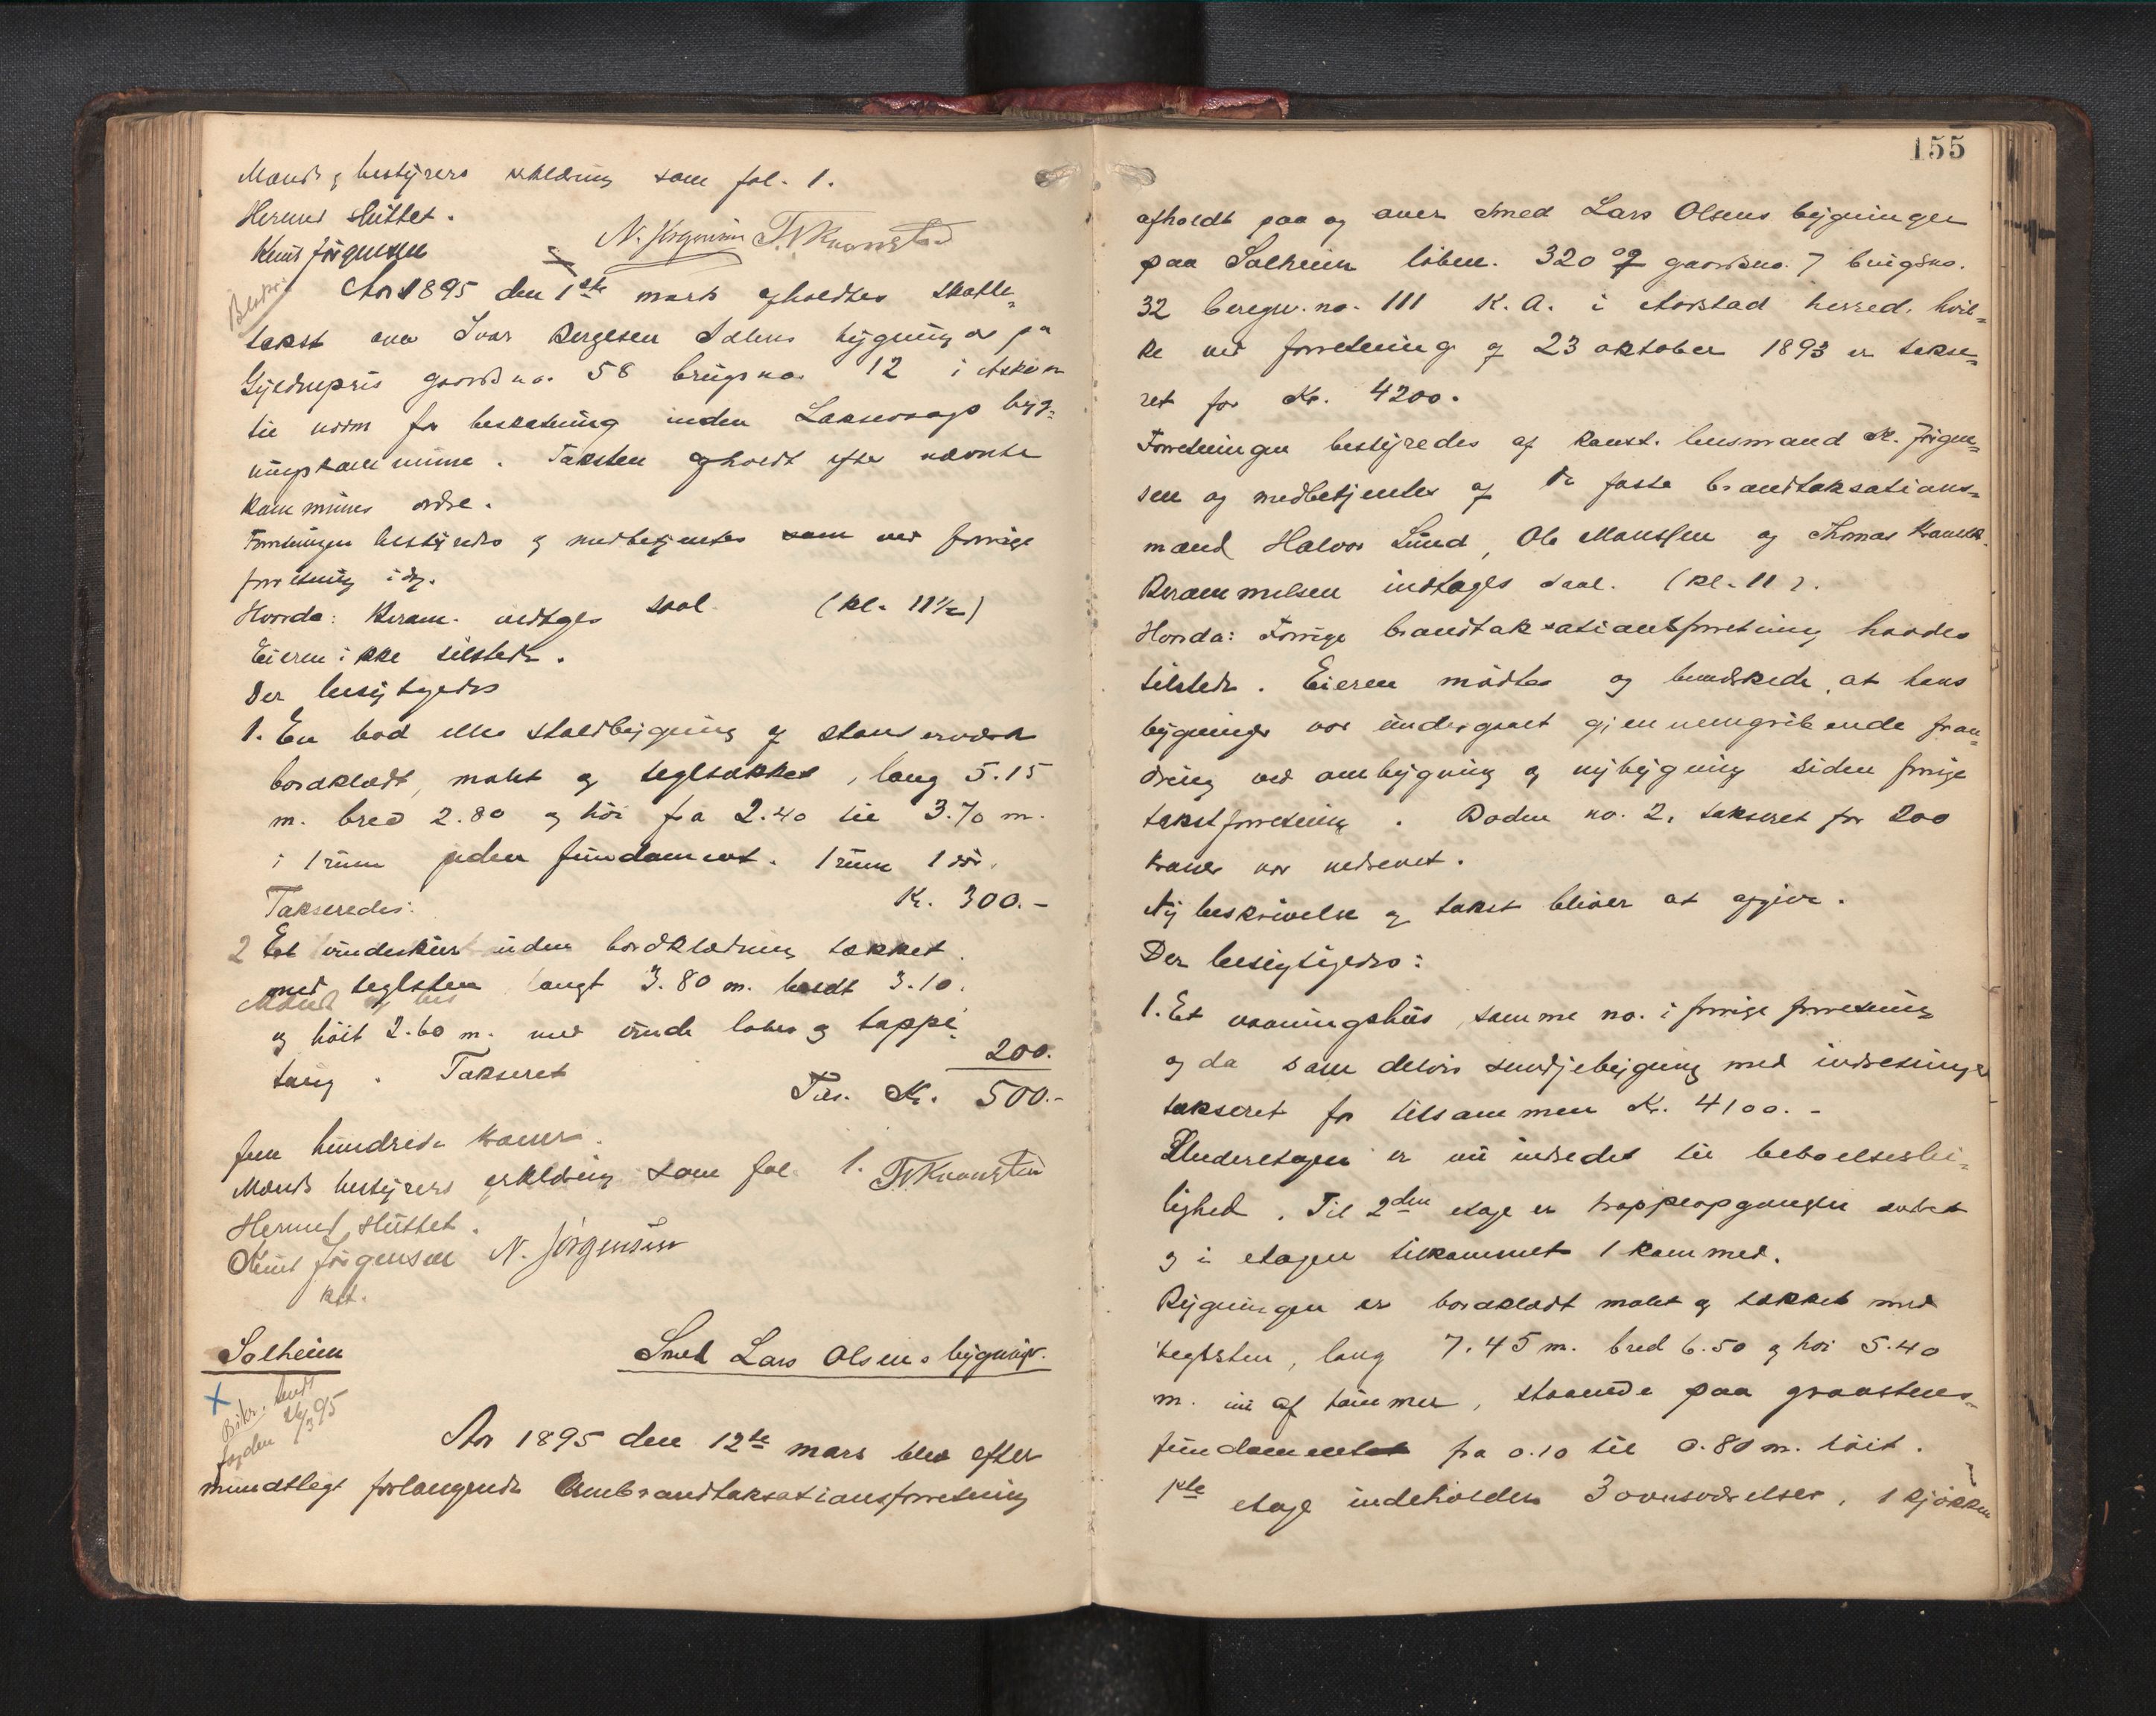 Mænds & bestyrers erklæring som fol. 1.
Hermed sluttet.
Knud Jörgensen N. Jörgensen T. Kvamstad
Aar 1895 den 1ste mars afholdtes skatte=
takst over Ivar Bergesen bygninger på
Gyldnepris gaardsno. 58 brugsno. 12 i Askøen
til norm for beskatning inden Laksevaags byg=
ningskommune. Taksten afholdt efter nævnte
kommunes ordre.
Forretningen bestyredes og medbetjentes som ved forrige
forretning idag.
Hvorda: Beram. indtages saal. (kl. 11½)
Eieren ikke tilstede.
Der besigtigedes
1. En bod eller staldbygning af standerværk
bordklædt, malet og tegltækket, lang 5.15
m. bred 2.80 og höi fra 2.40 til 3.70 m.
i 1 rum uden fundament. 1 rum 1 dör.
Takseredes: Kr. 300.-
2 Et uden bordklædning tækket
med teglsten langt 3.80 m. bredt 3.10.
og höit 2.60 m. med
Takseret 200.
Tils. Kr. 500.-
fem hundrede kroner.
Mænds bestyrers erklæring som fol. 1. T. Kvamstad
Hermed sluttet.
Knud Jörgensen N. Jörgensen
kst.
Solheim Smed Lars Olsens bygninger.
X
Bskr. sendt
fogden 26/3 95
Aar 1895 den 12te mars blev efter
mundtligt forlangende Ombrandtaksationsforretning
155
afholdt paa og over smed Lars Olsens bygninger
paa Solheim löben. 320 og gaardsno. 7 brugsno.
32 beregn. no. 111 K. A. i Aarstad herred, hvil=
ke ved forretning af 23 oktober 1893 er takse=
ret for Kr. 4200.
Forretningen bestyredes af konst. lensmand K. Jörgen=
sen og medbetjentes af de faste brandtaksations=
mænd Halvor Lund, Ole Monssen og Thomas
Berammelsen indtages saal. (kl. 11).
Hvorda: Forrige brandtaksationsforretning havdes
tilstede. Eieren mødte og bemærkede, at hans
bygninger var undergaaet gjennemgribende foran=
dring ved ombygning og nybygning siden forrige
takstforretning. Boden no. 2, takseret for 200
kroner var nedrevet.
Ny beskrivelse og takst bliver at afgive.
Der besigtigedes:
1. Et vaaningshus, samme no. i forrige forretning
og da som delvis smedjebygning med indretninger
takseret for tilsammen Kr. 4100.-
Underetagen er nu indredet til beboelseslei=
lighed. Til 2den etage er trappeopgangen
og i etagen tilkommet 1 kammer.
Bygningen er bordklædt malet og tækket med
teglsten, lang 7.45 m. bred 6.50 og höi 5.40
m. nu af tömmer, staaende paa graastens=
fundament fra 0.10 til 0.80 m. höit.
1ste etage indeholder 3 ovnsværelser, 1 kjökken